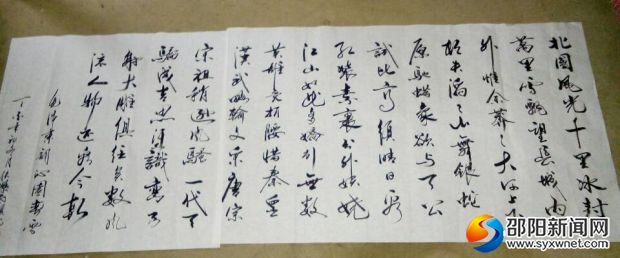 北國風光千里冰封
萬里雪飄望長城内
外惟余莽〻大河上下
頓失滔〻山舞銀蛇
原馳蠟象欲与天公
試比高須晴日看
红裝素裹分外妖娆
江山如此多嬌引無数
英雄竞折腰惜秦皇
漢武略輸文采唐宗
宋祖稍逊风騷一代天
驕成吉思汗識彎弓
射大雕俱往矣数风
流人物还看今朝
毛泽東詞沁園春雪
邵阳新闻网
www.syxwnet.com